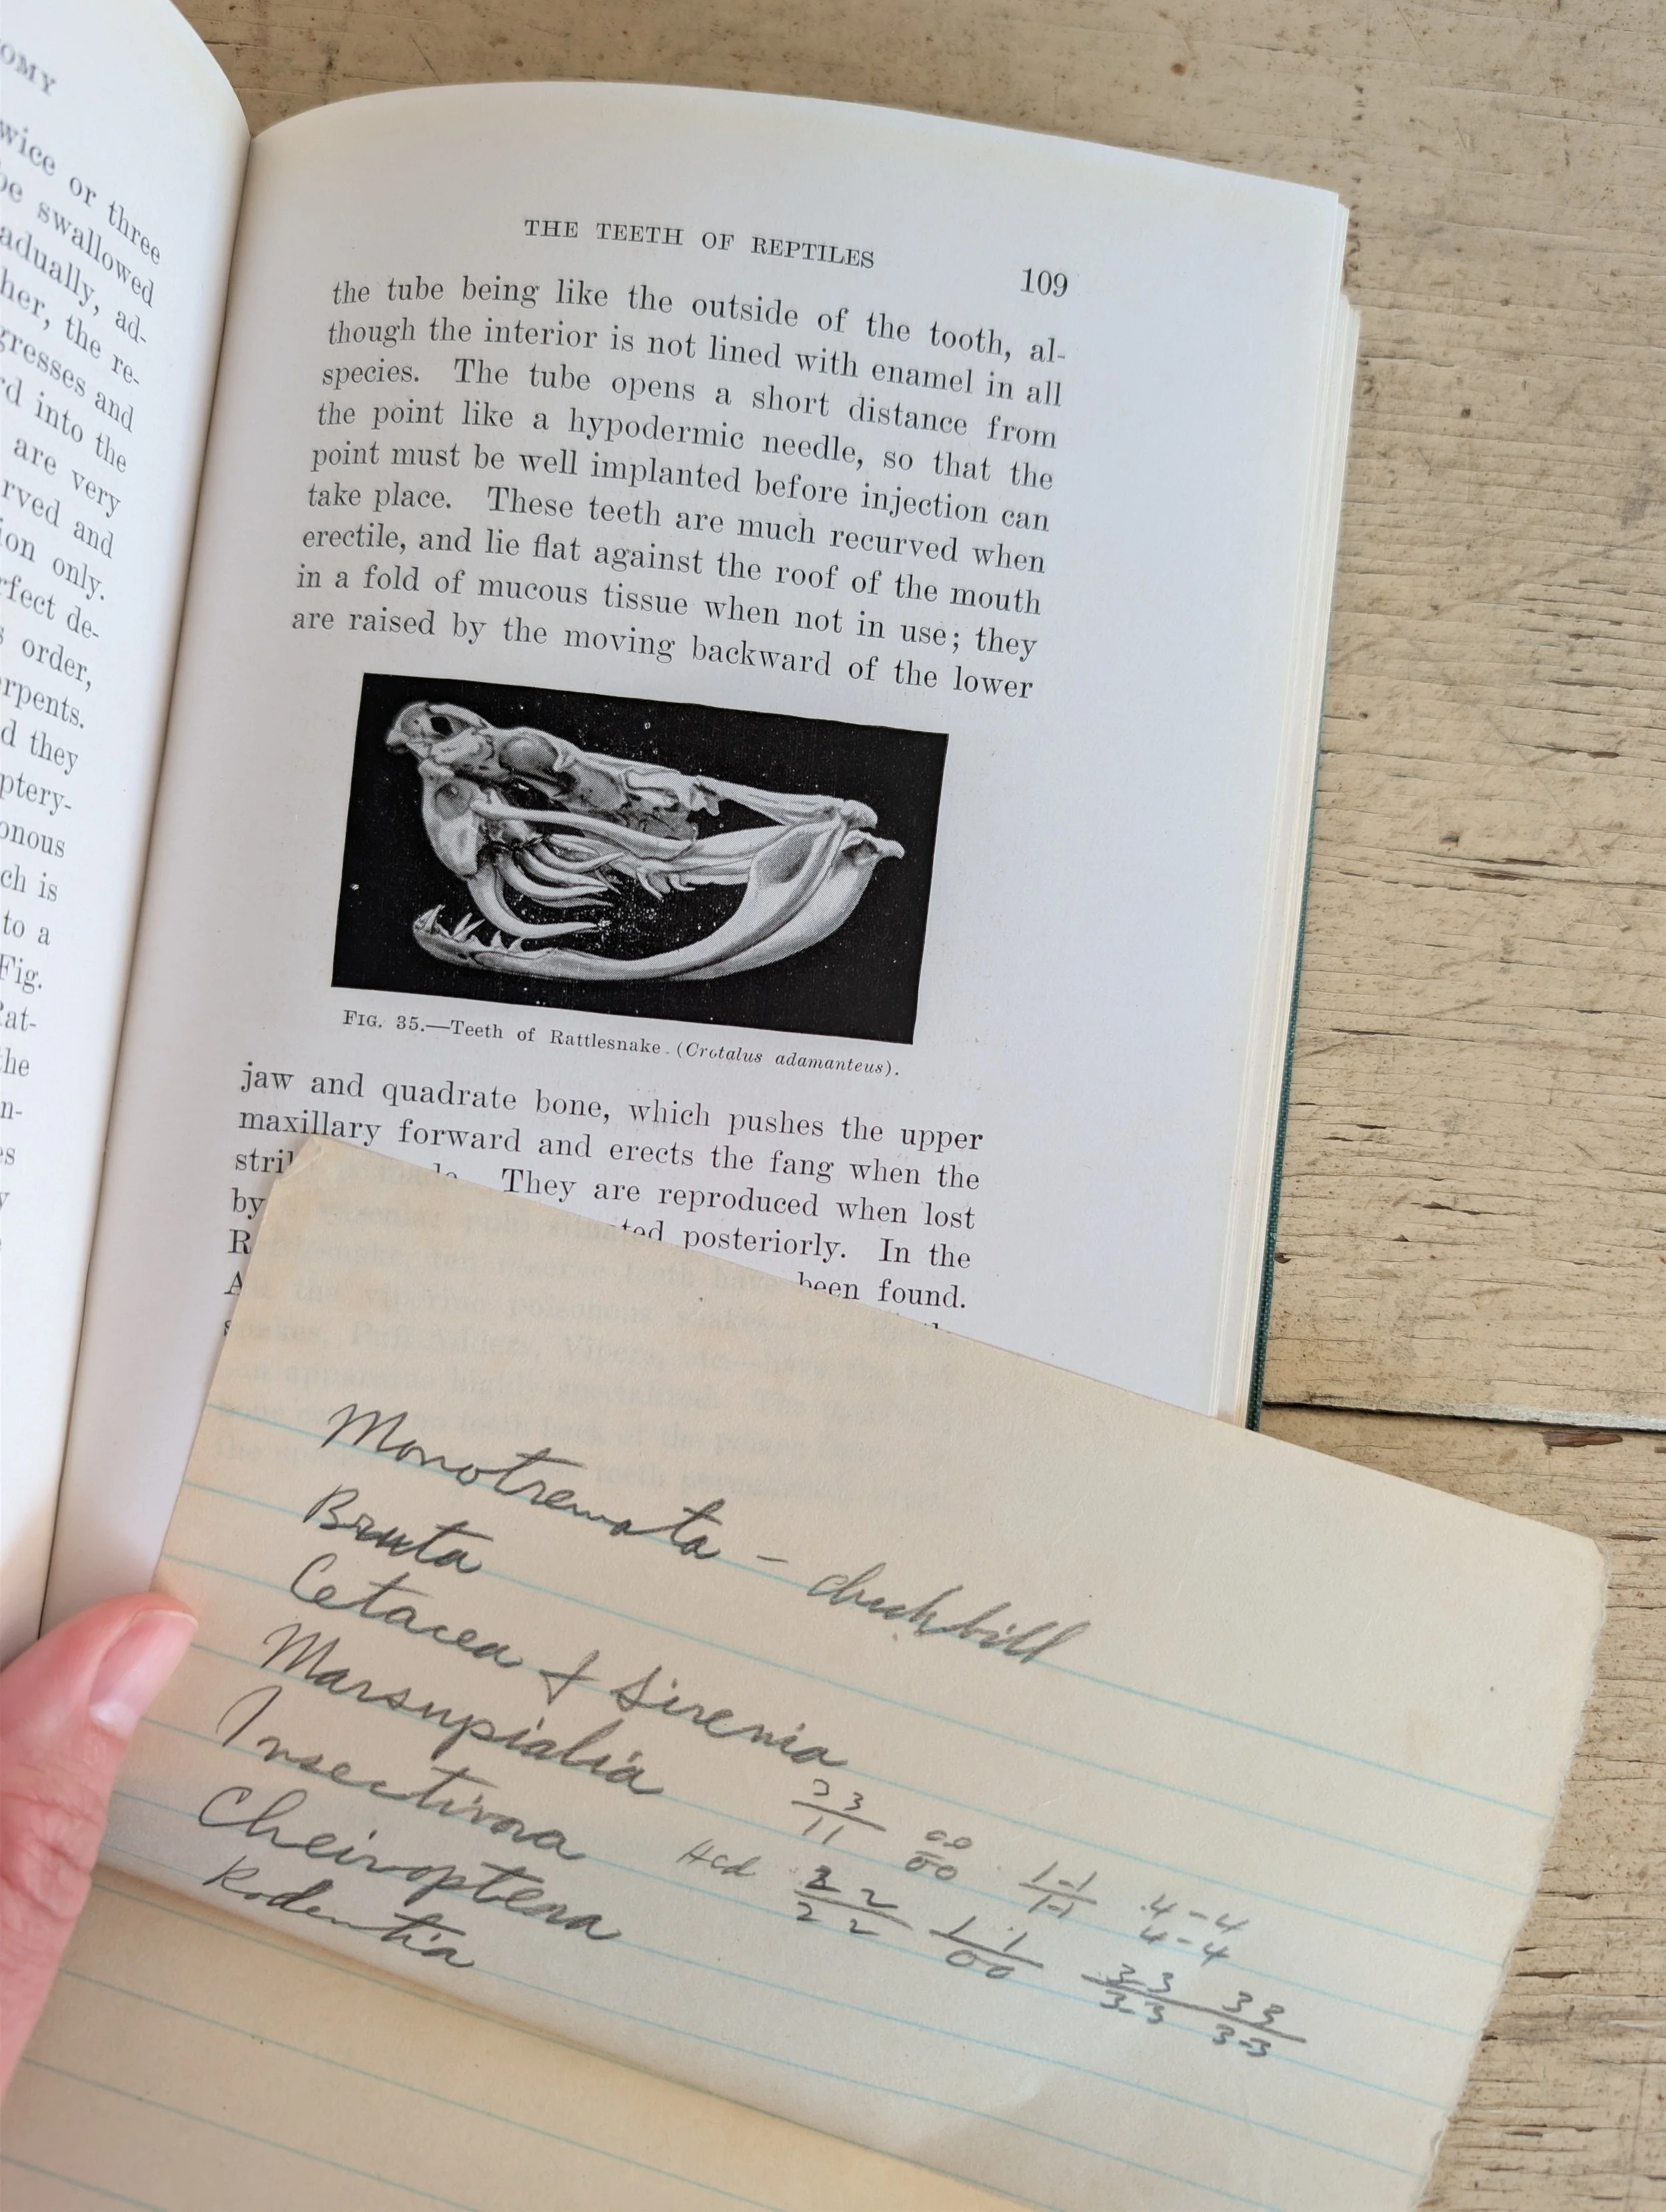 OMY
wice or three
be swallowed
adually, ad-
her, the re-
gresses and
rd into the
are very
rved and
ion only.
rfect de-
s order,
erpents.
d they
ptery-
onous
ch is
to a
Fig.
Rat-
the
n-
es
y
THE TEETH OF REPTILES
109
the tube being like the outside of the tooth, al-
though the interior is not lined with enamel in all
species. The tube opens a short distance from
the point like a hypodermic needle, so that the
point must be well implanted before injection can
take place. These teeth are much recurved when
erectile, and lie flat against the roof of the mouth
in a fold of mucous tissue when not in use; they
are raised by the moving backward of the lower
FIG. 35.—Teeth of Rattlesnake. (Crotalus adamanteus).
jaw and quadrate bone, which pushes the upper
maxillary forward and erects the fang when the
stri They are reproduced when lost
by ted posteriorly. In the
R been found.
A
Monotremata – duckbill
Bruta
Cetacea & Sirenia
Marsupialia
Insectivora 33/11 00/00 1-1/1-1 4-4/4-4
Cheiroptera 22/22 1·1/00 33/3-3 33/3-3
Rodentia